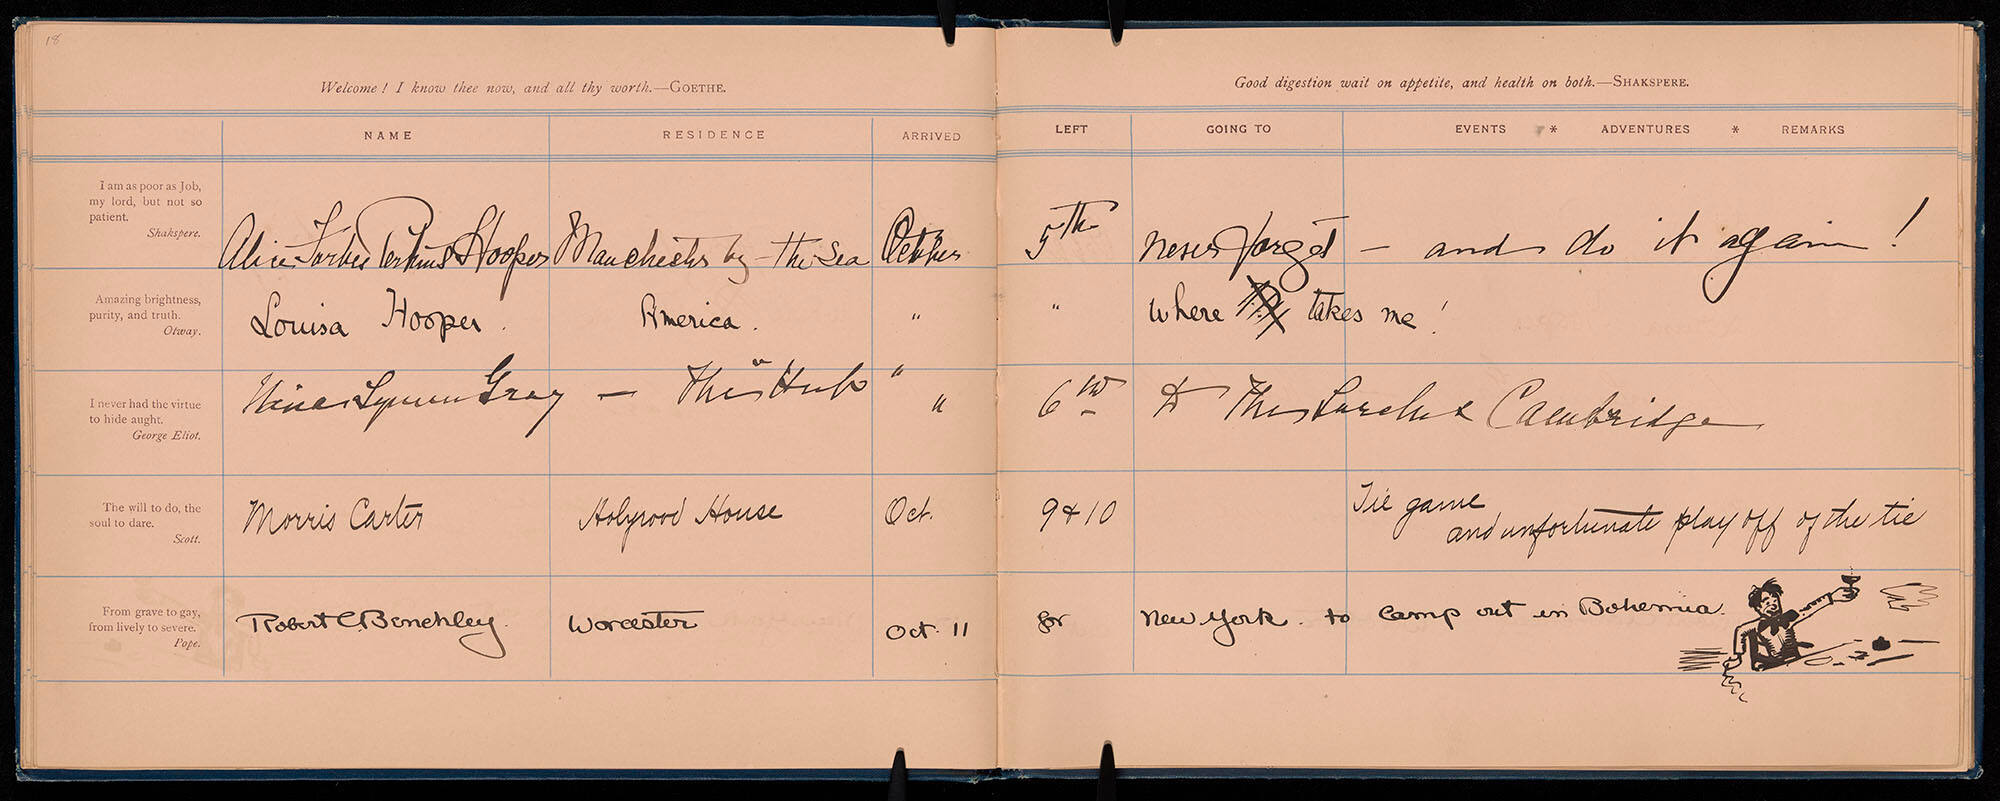 18
Welcome! I know thee now, and all thy worth.—GOETHE.
Good digestion wait on appetite, and health on both.—SHAKSPERE.
NAME RESIDENCE ARRIVED LEFT GOING TO EVENTS * ADVENTURES * REMARKS
I am as poor as Job,
my lord, but not so
patient.
Shakspere.
Alice Forbes Perkins Hooper Manchester by-the Sea October 5th never forget — and do it again!
Amazing brightness,
purity, and truth.
Otway.
Louisa Hooper. America. " " Where takes me!
I never had the virtue
to hide aught.
George Eliot.
Nina Lyman Gray — The "Hub" " 6th To The Larches Cambridge
The will to do, the
soul to dare.
Scott.
Morris Carter Holyrood House Oct. 9 & 10 Tie game
and unfortunate play off of the tie
From grave to gay,
from lively to severe.
Pope.
Robert C. Benchley. Worcester Oct. 11 for New York. to camp out in Bohemia.